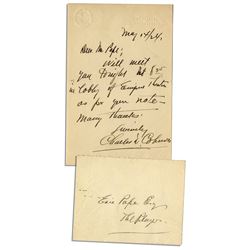 May 14/24.
Dear Mr Pape;
Will meet
you tonight at 8:30
in Lobby of Empire Theatre
as per your note –
Many thanks.
Sincerely
Charles D Coburn
Eric Pape Esq
The Players